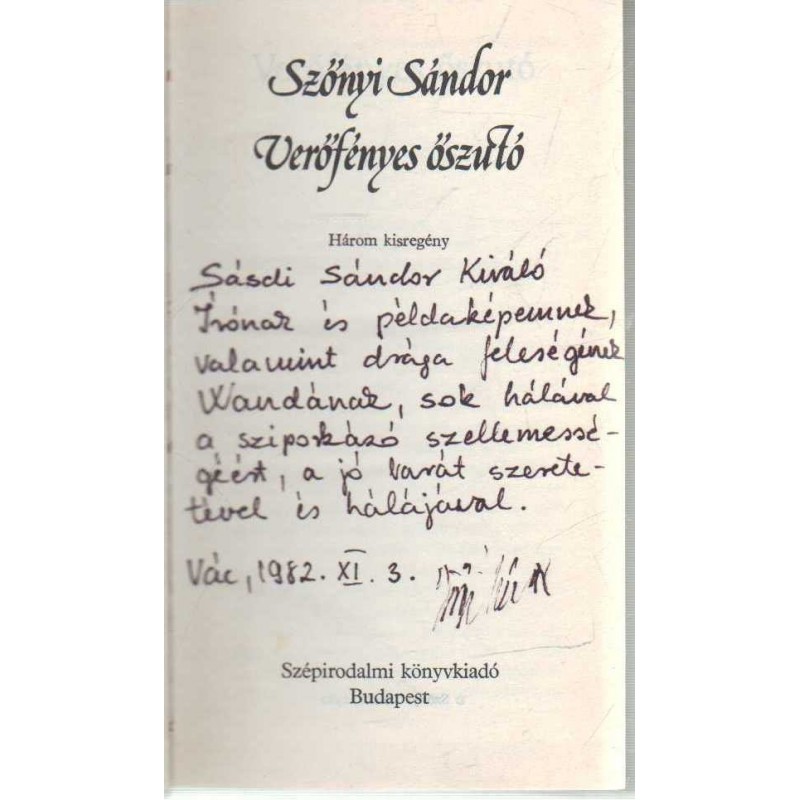 Szőnyi Sándor
Verőfényes őszutó
Három kisregény
Sásdi Sándor Kiváló
Írónak és példaképemnek,
valamint drága feleségének
Wandának, sok hálával
a sziporkázó szellemessé-
géért, a jó barát szerete-
tével és hálájával.
Vác, 1982. XI. 3.
Szépirodalmi könyvkiadó
Budapest